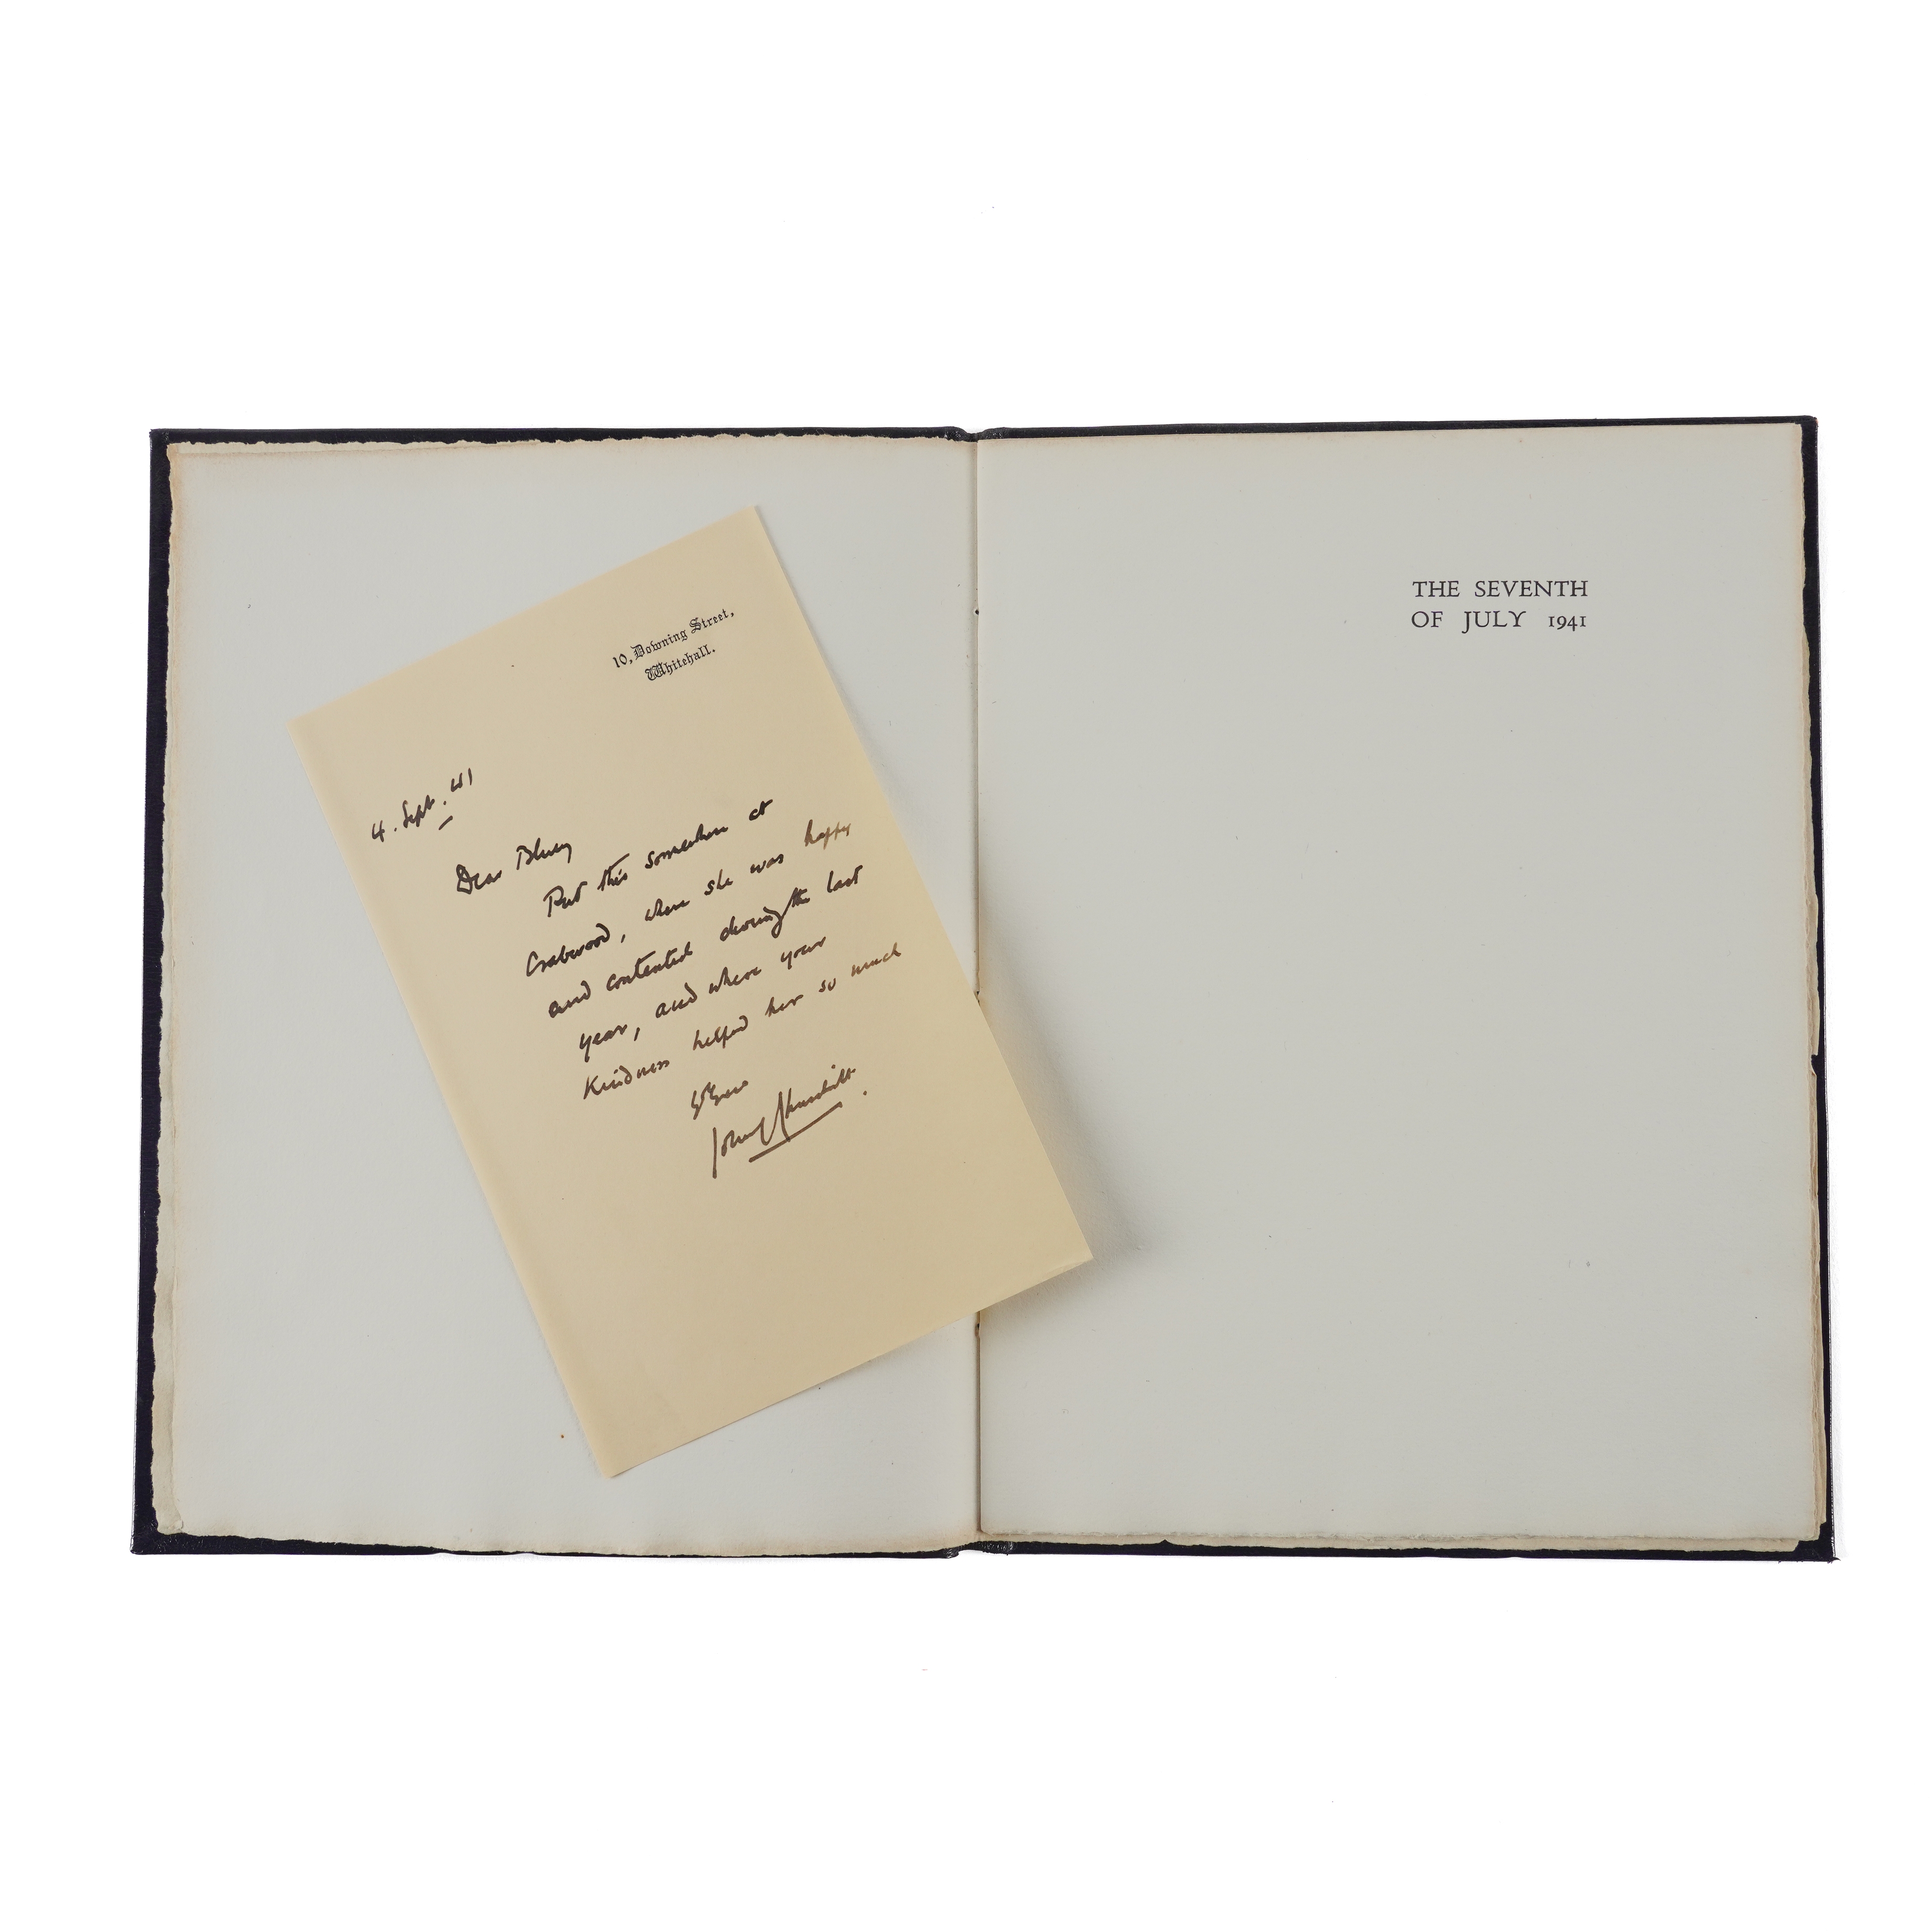 10, Downing Street,
Whitehall.
4. Sept. 41
Dear
Put this somewhere at
Crabwood, where she was happy
and contented during the last
year, and where your
kindness helped her so much
Churchill.
THE SEVENTH
OF JULY 1941